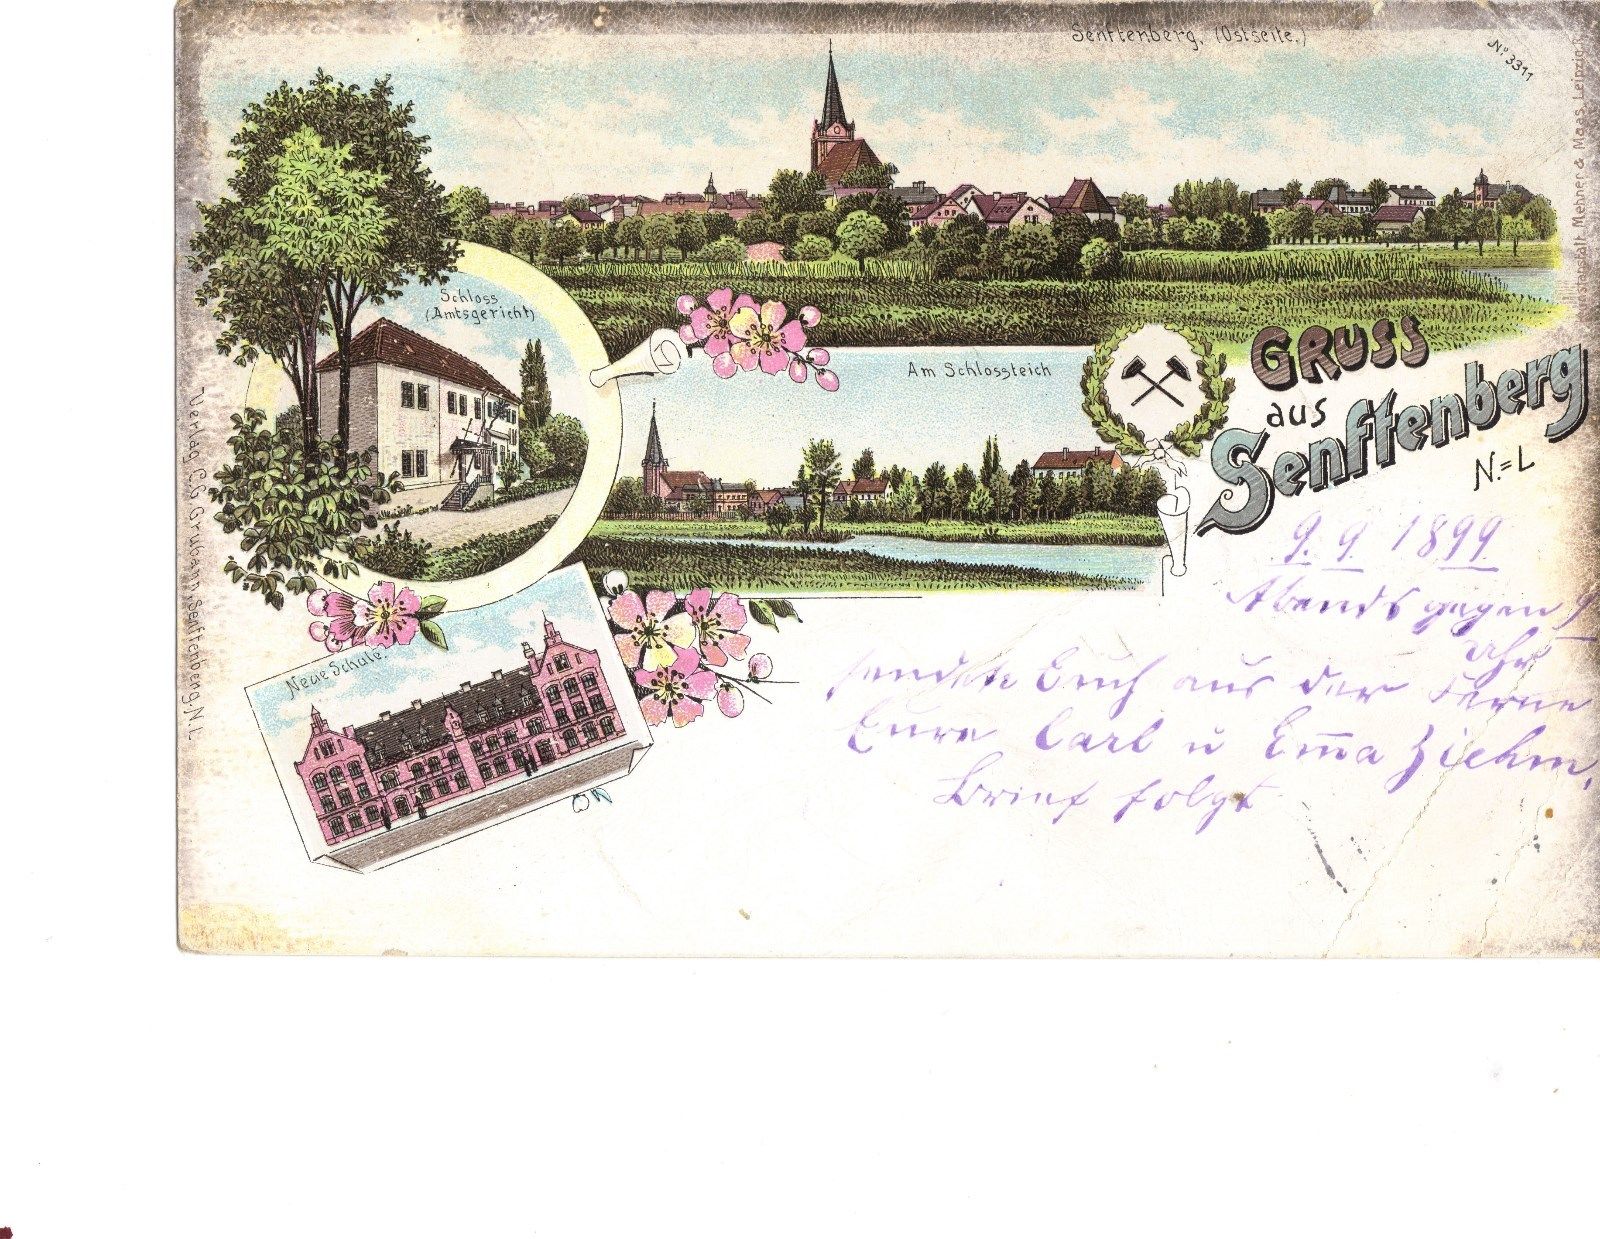 Senftenberg. (Ostseite.)
No 3311
Schloss
(Amtsgericht)
Am Schlossteich
GRUSS
aus
Senftenberg
N.=L
Neue Schule.
Verlag C.G. Grubann, Senftenberg N.L.
Kunstanstalt Mehner & Maas Leipzig
9. 9. 1899
Abends gegen 9
Uhr
sendete Euch aus der Ferne
Eure Carl u Em̅a Ziehm,
Brief folgt